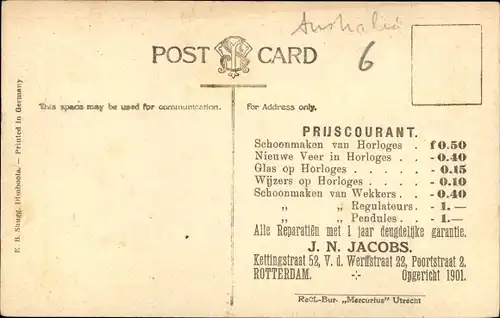 Australië
6
POST CARD
This space may be used for communication.
for Address only.
F. B. Shugg, Dimboola. — Printed in Germany
PRIJSCOURANT.
Schoonmaken van Horloges . f 0.50
Nieuwe Veer in Horloges . . - 0.40
Glas op Horloges . . . . . - 0.15
Wijzers op Horloges . . . . - 0.10
Schoonmaken van Wekkers . - 0.40
„ „ Regulateurs . - 1.—
„ „ Pendules . . - 1.—
Alle Reparatiën met 1 jaar deugdelijke garantie.
J. N. JACOBS.
Kettingstraat 52, V. d. Werffstraat 22, Poortstraat 2.
ROTTERDAM. -:- Opgericht 1901.
Recl.-Bur. „Mercurius” Utrecht